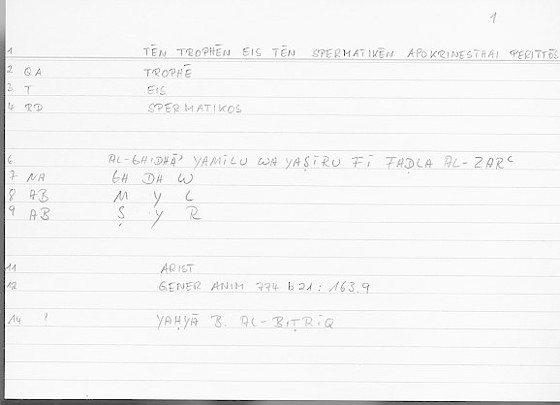 1
1 TĒN TROPHĒN EIS TĒN SPERMATIKĒN APOKRINESTHAI PERITTŌS
2 QA TROPHĒ
3 T EIS
4 RD SPERMATIKOS
6 AL-GHIDHĀʾ YAMĪLU WA YAṢĪRU FĪ FAḌLA AL-ZARʿ
7 NA GH DH W
8 AB M Y L
9 AB Ṣ Y R
11 ARIST
12 GENER ANIM 774 b 21 : 163.9
14 ? YAḤYĀ B. AL-BIṬRĪQ